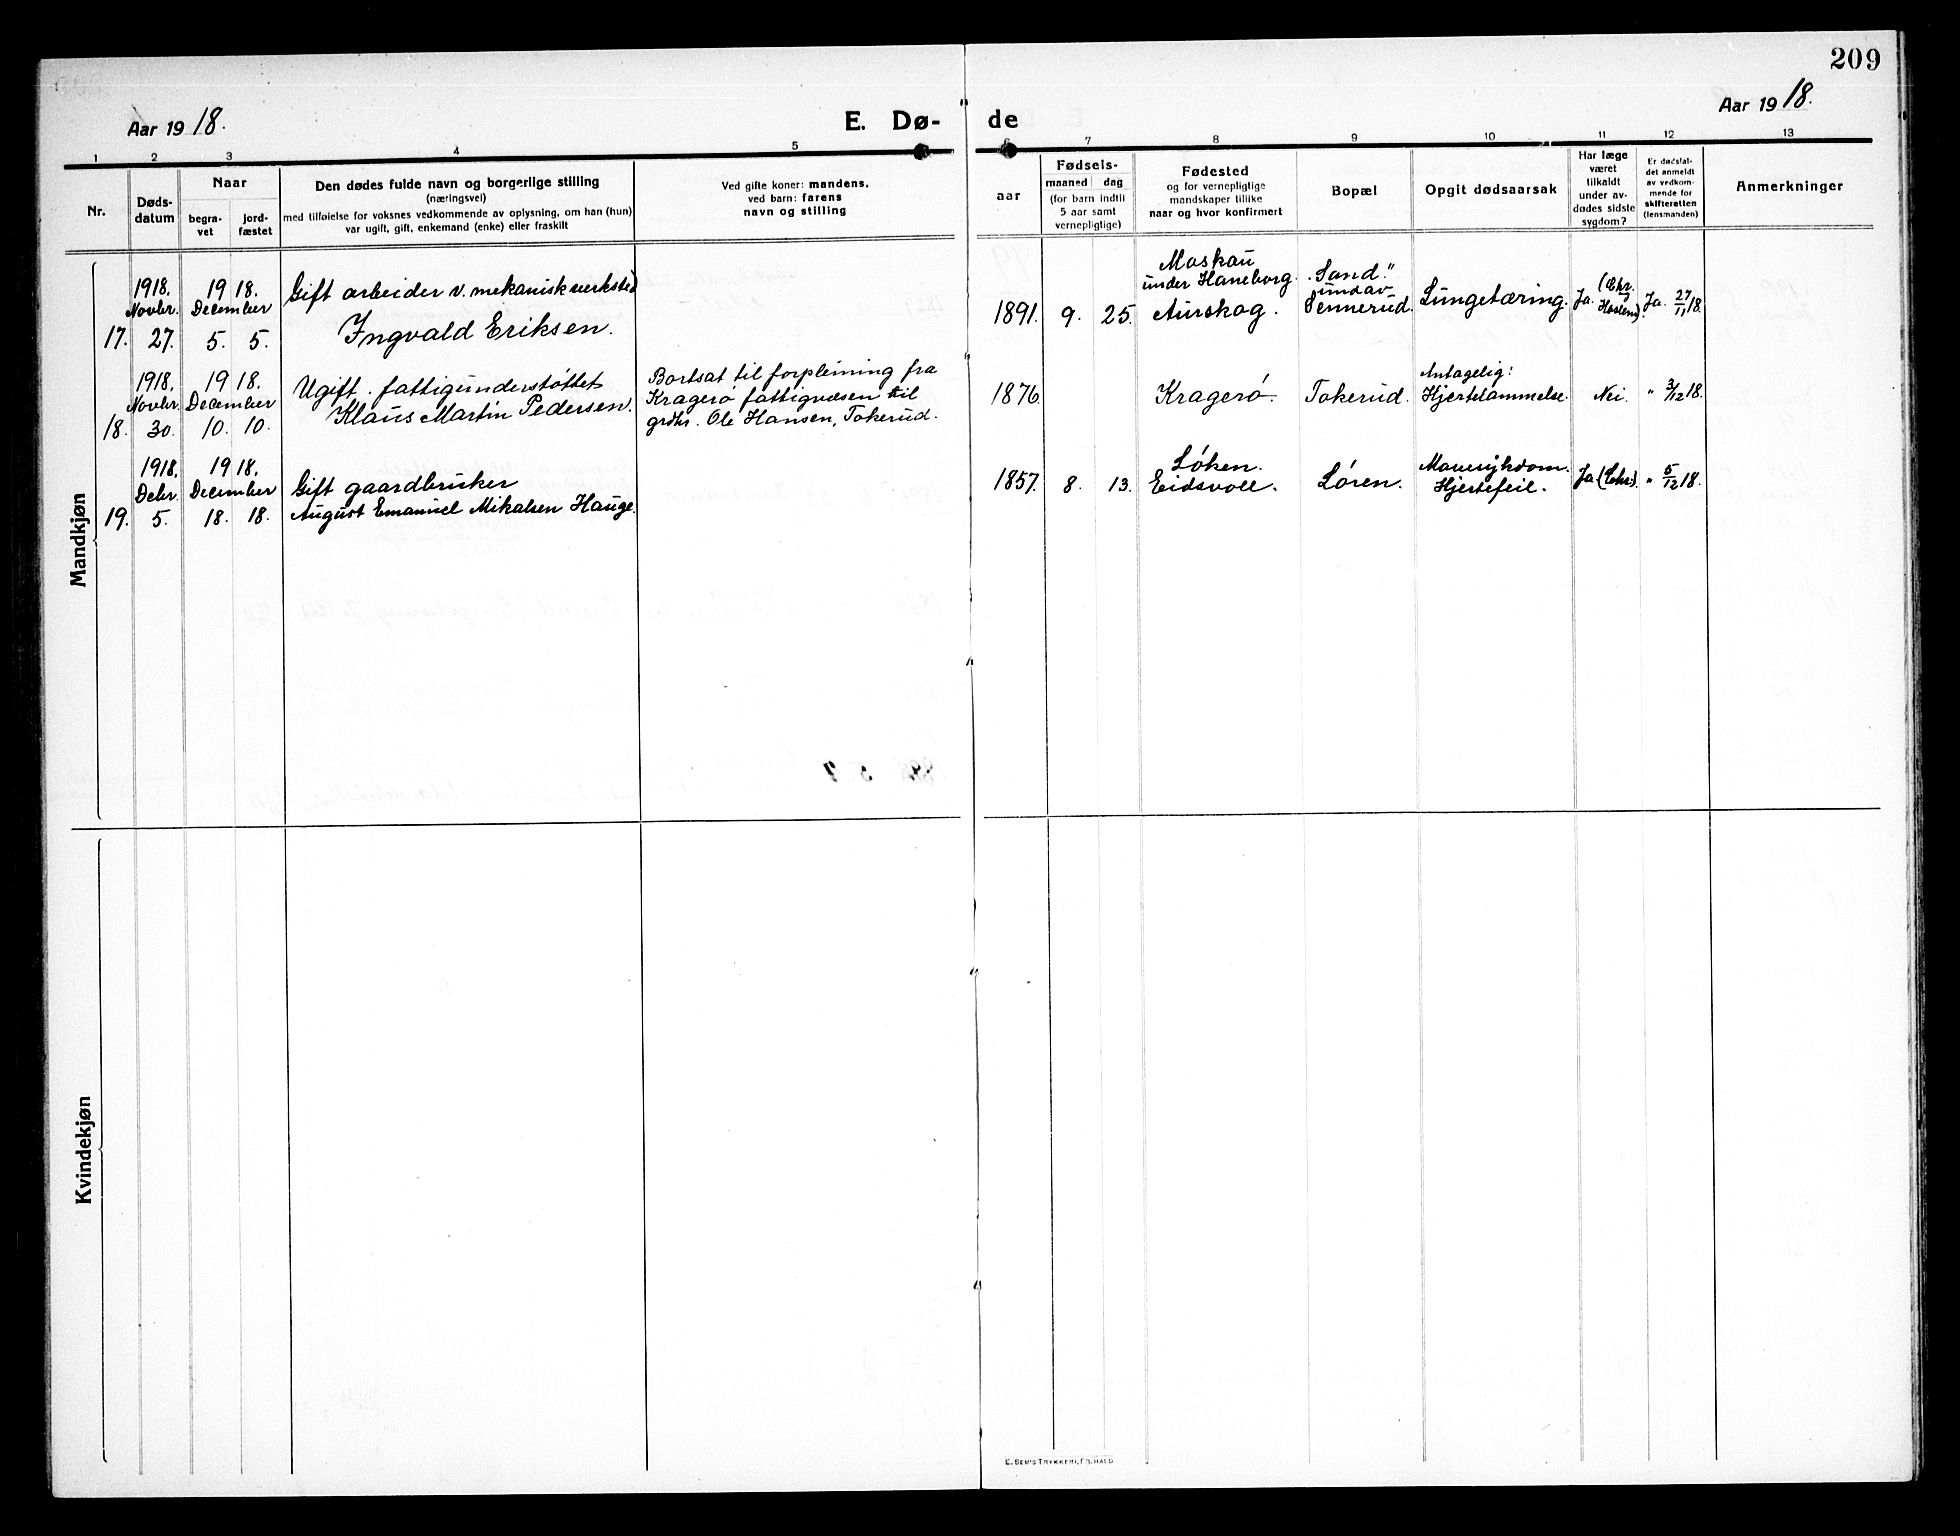 209
Aar 1918.
E. Dø-
de
Aar 1918.
1 2 3 4 5 6 7 8 9 10 11 12 13
Nr.
Døds-
datum
Naar
begra-
vet
jord-
fæstet
Den dødes fulde navn og borgerlige stilling
(næringsvei)
med tilføielse for voksnes vedkommende av oplysning, om han (hun)
var ugift, gift, enkemand (enke) eller fraskilt
Ved gifte koner: mandens,
ved barn: farens
navn og stilling
aar
Fødsels-
maaned dag
(for barn indtil
5 aar samt
vernepligtige)
Fødested
og for vernepligtige
mandskaper tillike
naar og hvor konfirmert
Bopæl
Opgit dødsaarsak
Har læge
været
tilkaldt
under av-
dødes sidste
sygdom?
Er dødsfal-
det anmeldt
av vedkom-
mende for
skifteretten
(lensmanden)
Anmerkninger
Mandkjøn
17.
1918.
Novbr.
27.
19 18.
December
5. 5.
Gift arbeider v. mekanisk verksted
Ingvald Eriksen.
1891. 9. 25.
Moskau
under Haneborg.
Aurskog.
"Sand"
und av
Sennerud.
Lungetæring.
Ja.
Ja. 27/11 18.
18.
1918.
Novbr.
30.
19 18.
December
10. 10.
Ugift. fattigunderstøttet
Klaus Martin Pedersen.
Bortsat til forpleining fra
Kragerø fattigvæsen til
grdbr. Ole Hansen, Tokerud.
1876.
Kragerø.
Tokerud.
Antagelig:
Hjertelammelse.
Nei.
" 3/12 18.
19.
1918.
Debr.
5.
19 18.
December
18. 18.
Gift gaardbruker
August Emanuel Mikalsen Hauge.
1857. 8. 13.
Løken.
Eidsvoll.
Løren.
Mavesykdom.
Hjertefeil.
Ja
" 5/12 18.
Kvindekjøn
E. SEM'S TRYKKERI, FR.HALD